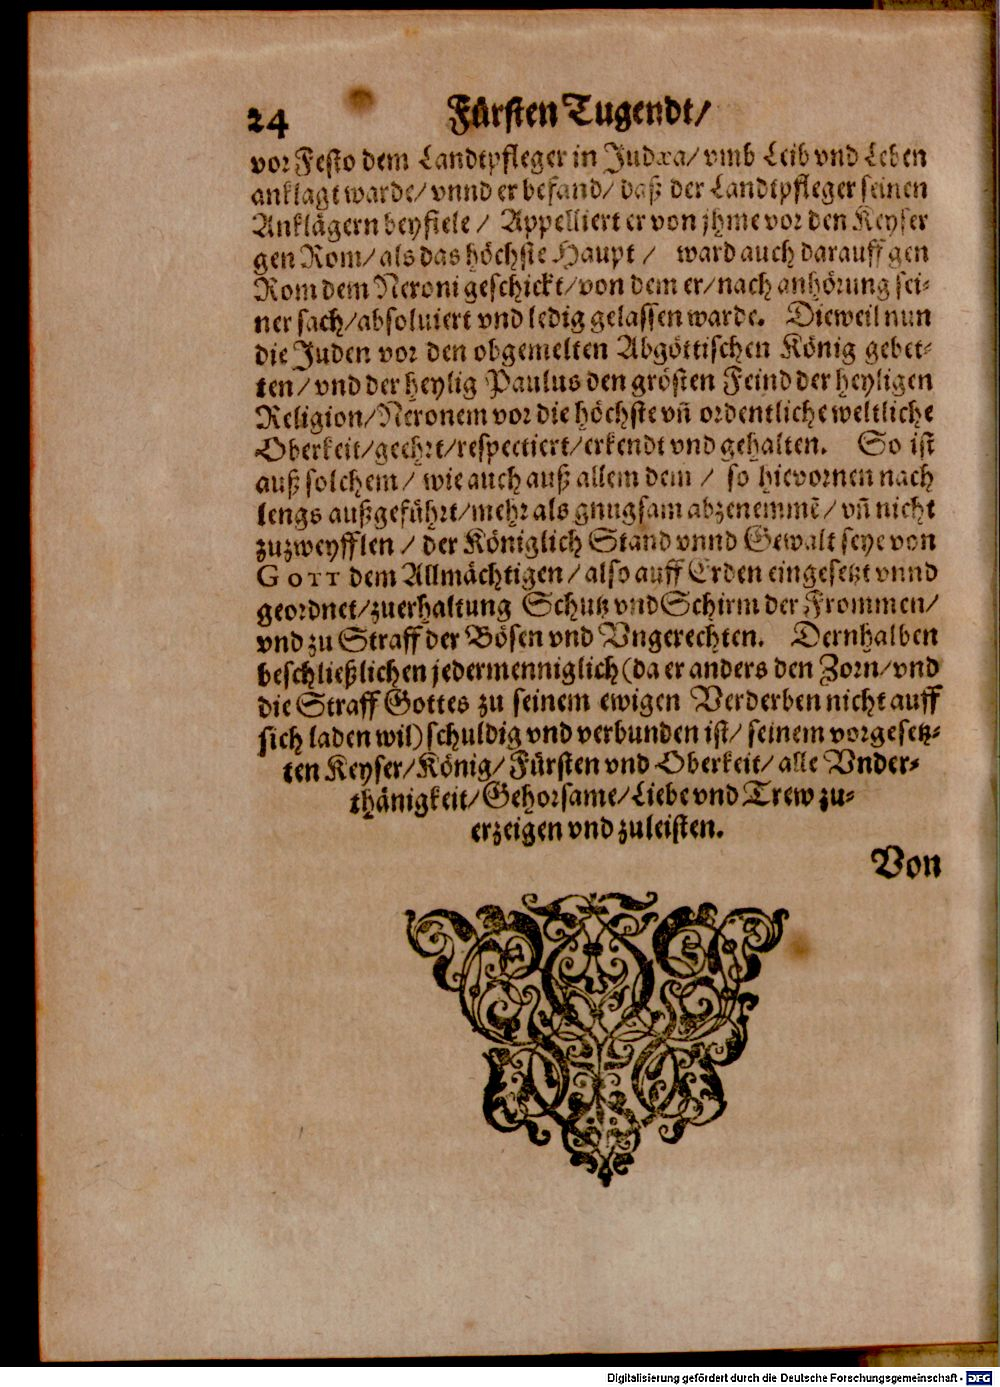 24 Fürsten Tugendt/
vor Festo dem Landtpfleger in Judæa/ vmb Leib vnd Leben
anklagt warde/ vnnd er befand/ daß der Landtpfleger seinen
Anklägern beyfiele / Appelliert er von jhme vor den Keyser
gen Rom/ als das höchste Haupt / ward auch darauff gen
Rom dem Neroni geschickt/ von dem er/ nach anhörung sei-
ner sach/ absoluiert vnd ledig gelassen warde. Dieweil nun
die Juden vor den obgemelten Abgöttischen König gebet-
ten/ vnd der heylig Paulus den grösten Feind der heyligen
Religion/ Neronem vor die höchste vñ ordentliche weltliche
Oberkeit/ geehrt/ respectiert/ erkendt vnd gehalten. So ist
auß solchem / wie auch auß allem dem / so hievornen nach
lengs außgeführt/ mehr als gnugsam abzenemmē/ vñ nicht
zuzweyfflen / der Königlich Stand vnnd Gewalt seye von
GOTT dem Allmächtigen/ also auff Erden eingesetzt vnnd
geordnet/ zuerhaltung Schutz vnd Schirm der Frommen/
vnd zu Straff der Bösen vnd Vngerechten. Dernhalben
beschließlichen jedermenniglich (da er anders den Zorn/ vnd
die Straff Gottes zu seinem ewigen Verderben nicht auff
sich laden wil) schuldig vnd verbunden ist/ seinem vorgesetz-
ten Keyser/ König/ Fürsten vnd Oberkeit/ alle Vnder-
thänigkeit/ Gehorsame/ Liebe vnd Trew zu-
erzeigen vnd zuleisten.
Von
Digitalisierung gefördert durch die Deutsche Forschungsgemeinschaft - DFG